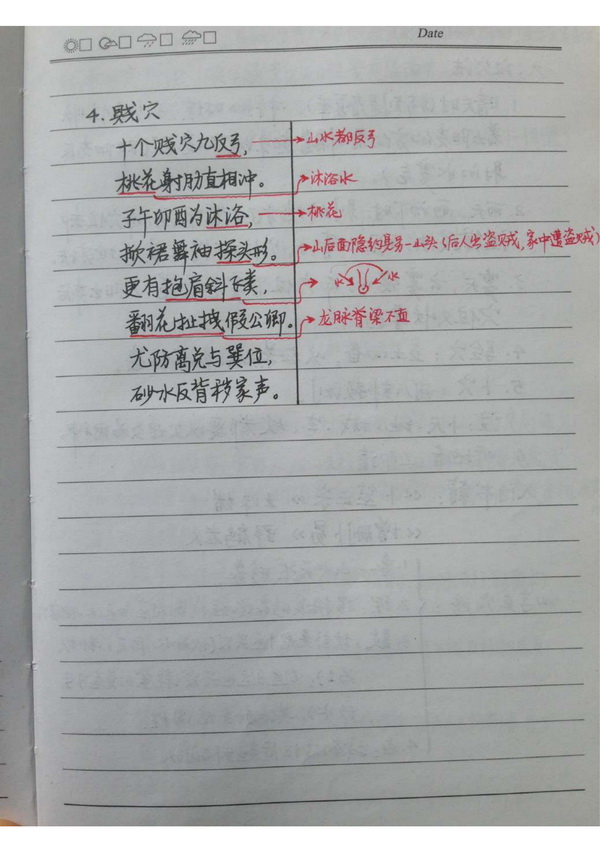 Date
4. 贱穴
十个贱穴九反弓，→山水都反弓
桃花射肋直相冲。→沐浴水
子午卯酉为沐浴，→桃花
掀裙舞袖探头形。→山后面隐约是另一山头（后人出盗贼，家中遭盗贼）
更有抱肩斜飞类，→水 水
翻花扯拽假公卿。→龙脉脊梁不直
尤防离兑与巽位，
砂水反背秽家声。